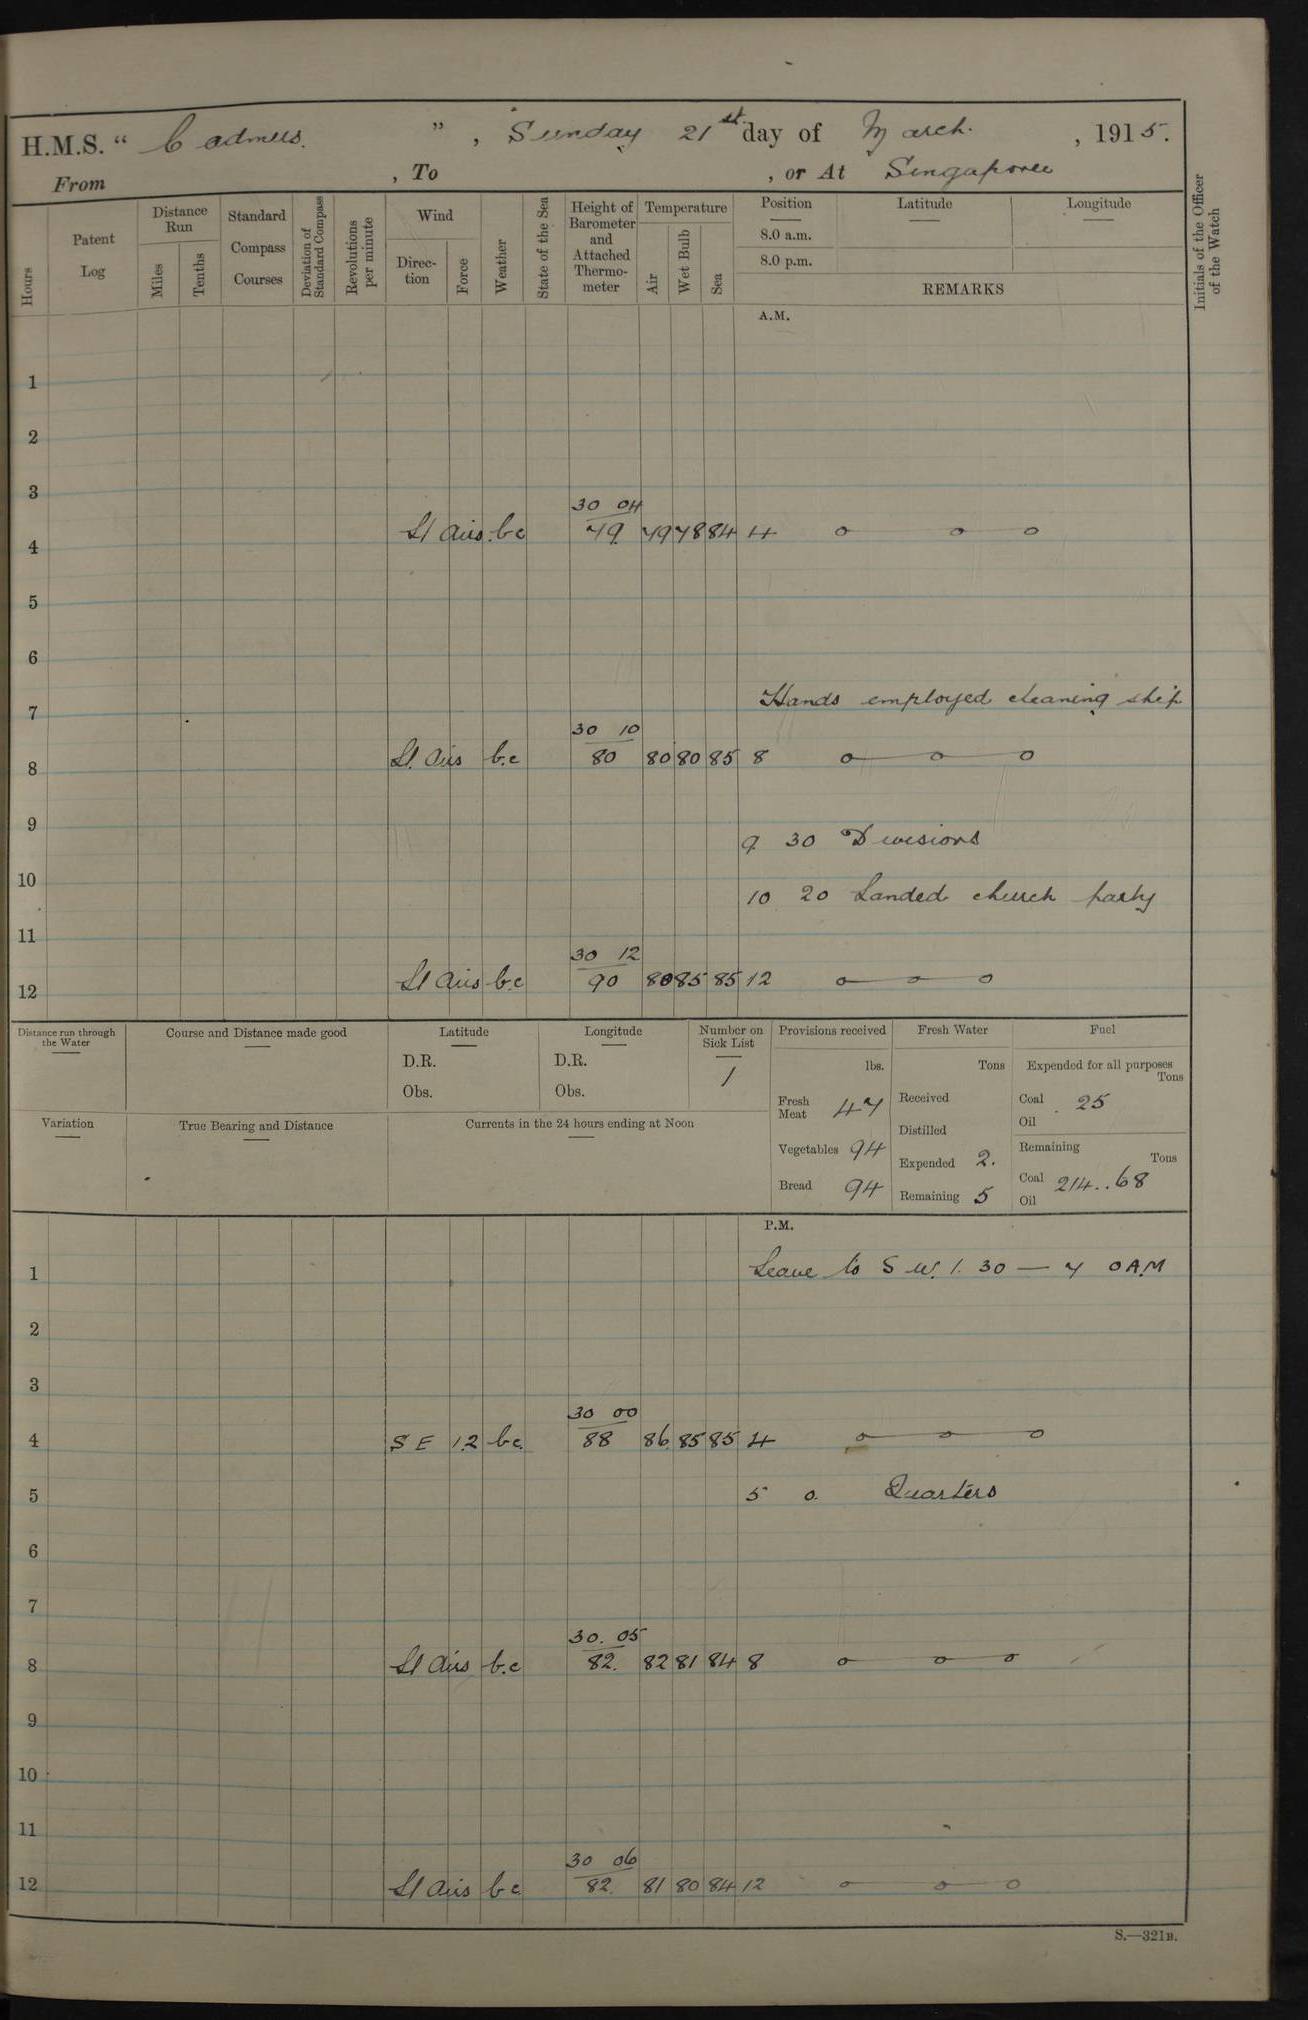 H.M.S. “ Cadmus. ” , Sunday 21st day of March. , 1915.
From , To , or At Singapore
Hours
Patent Log
Distance Run
Miles
Tenths
Standard Compass Courses
Deviation of Standard Compass
Revolutions per minute
Wind
Direction
Force
Weather
State of the Sea
Height of Barometer and Attached Thermometer
Temperature
Air
Wet Bulb
Sea
Position Latitude Longitude
8.0 a.m.
8.0 p.m.
REMARKS
Initials of the Officer of the Watch
A.M.
1
2
3
30 04
4 Lt airs. bc 79 79 78 84 4
5
6
Hands employed cleaning ship
7
30 10
8 Lt. airs b.c 80 80 80 85 8
9
9 30 Divisions
10
10 20 Landed church party
11
30 12
12 Lt airs b.c 90 85 85 12
Distance run through the Water
Course and Distance made good
Latitude
D.R.
Obs.
Longitude
D.R.
Obs.
Number on Sick List
1
Provisions received
lbs.
Fresh Meat 47
Vegetables 94
Bread 94
Fresh Water
Tons
Received
Distilled
Expended 2.
Remaining 5
Fuel
Expended for all purposes
Tons
Coal 25
Oil
Remaining
Tons
Coal 214..68
Oil
Variation
True Bearing and Distance
Currents in the 24 hours ending at Noon
P.M.
1 Leave to S W. 1. 30 — 7 0 AM
2
3
30 00
4 S E 1.2 bc. 88 86 85 85 4
5 5 0. Quarters
6
7
30. 05
8 Lt airs b.c 82. 82 81 84 8
9
10
11
30 06
12 Lt airs bc 82. 81 80 84 12
S.—321B.